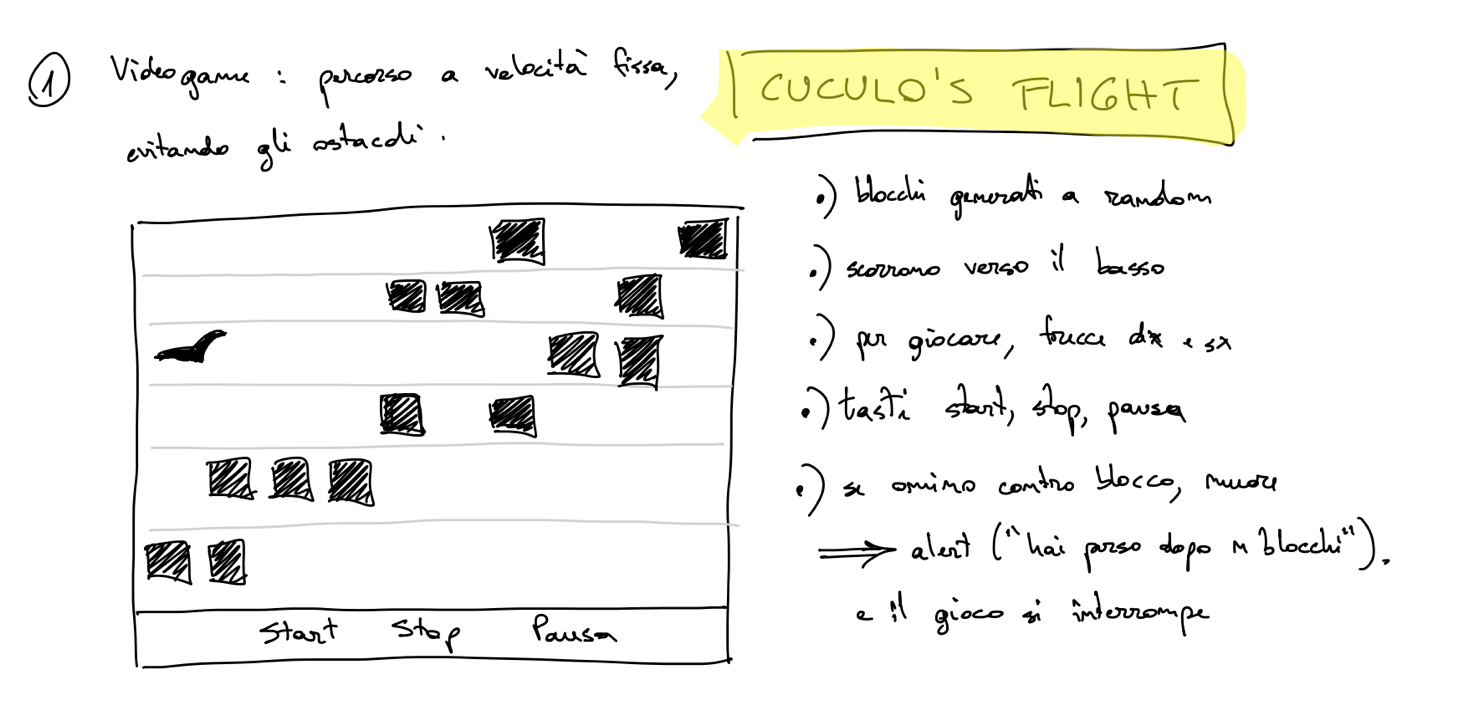 1 Videogame : percorso a velocità fissa,
evitando gli ostacoli.
CUCULO'S FLIGHT
•) blocchi generati a random
•) scorrono verso il basso
•) per giocare, frecce dx e sx
•) tasti start, stop, pausa
•) se omino contro blocco, muore
⟹ alert ("hai perso dopo n blocchi").
e il gioco si interrompe
Start Stop Pausa